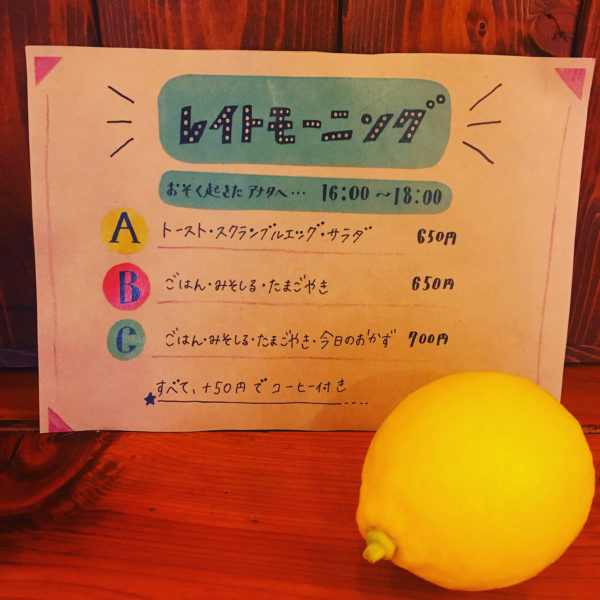 レイトモーニング
おそく起きたアナタへ… 16:00～18:00
A トースト・スクランブルエッグ・サラダ 650円
B ごはん・みそしる・たまごやき 650円
C ごはん・みそしる・たまごやき・今日のおかず 700円
★すべて、+50円でコーヒー付き